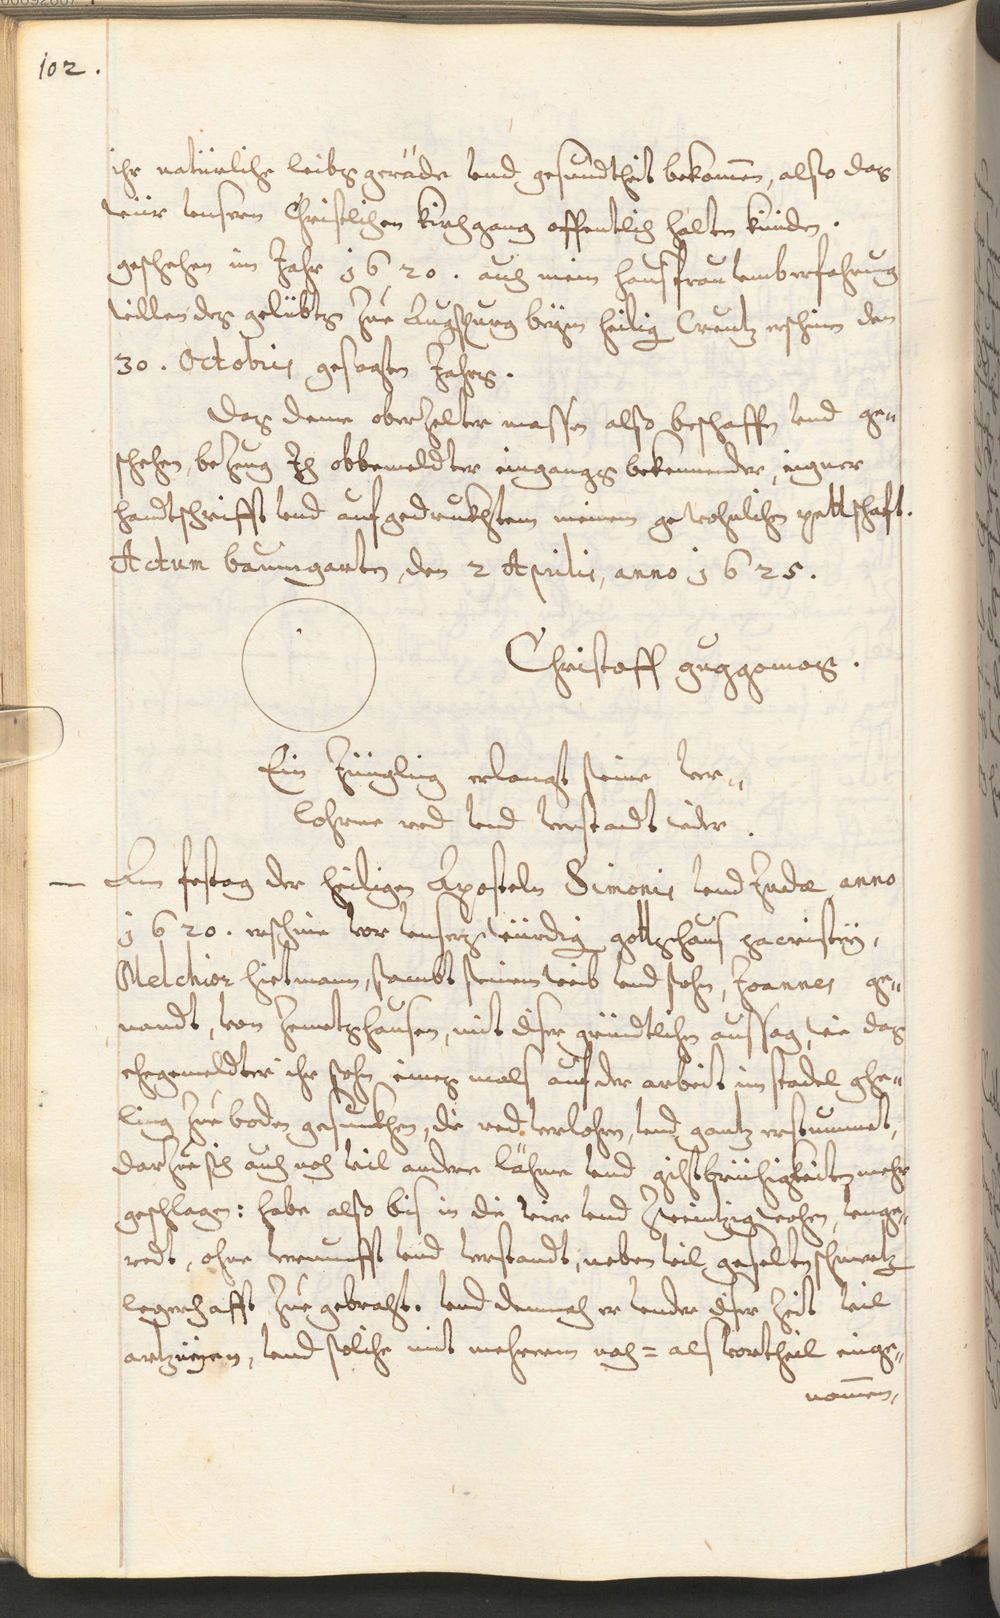 102.
ihr natürliche leibs geräde vnd gesundtheit bekomen, also das
wür vnsern Christlichen kirchgang offentlich halten künden.
geschehen im Jahr 1620. auch mein hausfrau vmb erfahrung
willen des gelübts zue Augspurg beym heilig Creutz erschinen den
30. Octobris gesagten Jahrs.
Das deme oberzelter massen also beschaffen vnd ge„
schehen, bezeug Ich obbemeldter eingangs bekennender, eigner
handtschrifft vnd aufgedruckhtem meinem gewohnlichen pettschaft.
Actum baumgarten, den 2 Aprilis, anno 1625.
Christoff guggomos.
Ein Jüngling erlangt seine ver„
lohrne red vnd verstandt wider.
Am festag der heiligen Aposteln Simonis vnd Judæ anno
1620. erschine vor vnsers würdig gottshaus sacristey,
Melchior hietmann, sambt seinem weib vnd sohn, Joannes ge„
nandt, von Zemetshausen, mit diser gründtlichen aussag, wie das
ehegemeldter ihr sohn eines mals auf der arbeit im stadel ghe„
ling zue boden gesunckhen, die red verlohren, vnd gantz erstummet,
darzue sich auch noch vil andere lähme vnd gichtbrüchigkeiten mehr
geschlagen: habe also bis in die vier vnd zweintzig wochen, vnge„
redt, ohne vernunfft vnd verstandt, neben vil schmertz
legerhafft zue gebracht. vnd demnach er vnder diser zeit vil
artzneyen, vnd solche mit mehrerm nach= als vortheil einge„
nommen,